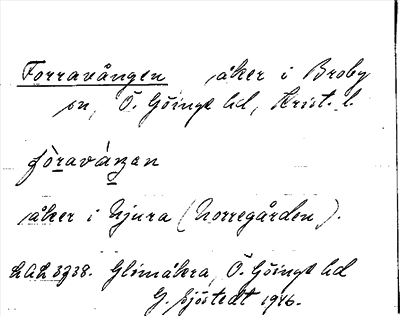 Forravången åker i Broby
sn, Ö. Göinge hd, Krist. l.
fòraváŋen
åker i Njura (Norregården).
LAL 3738. Glimåkra, Ö. Göinge hd
G. Sjöstedt 1916.